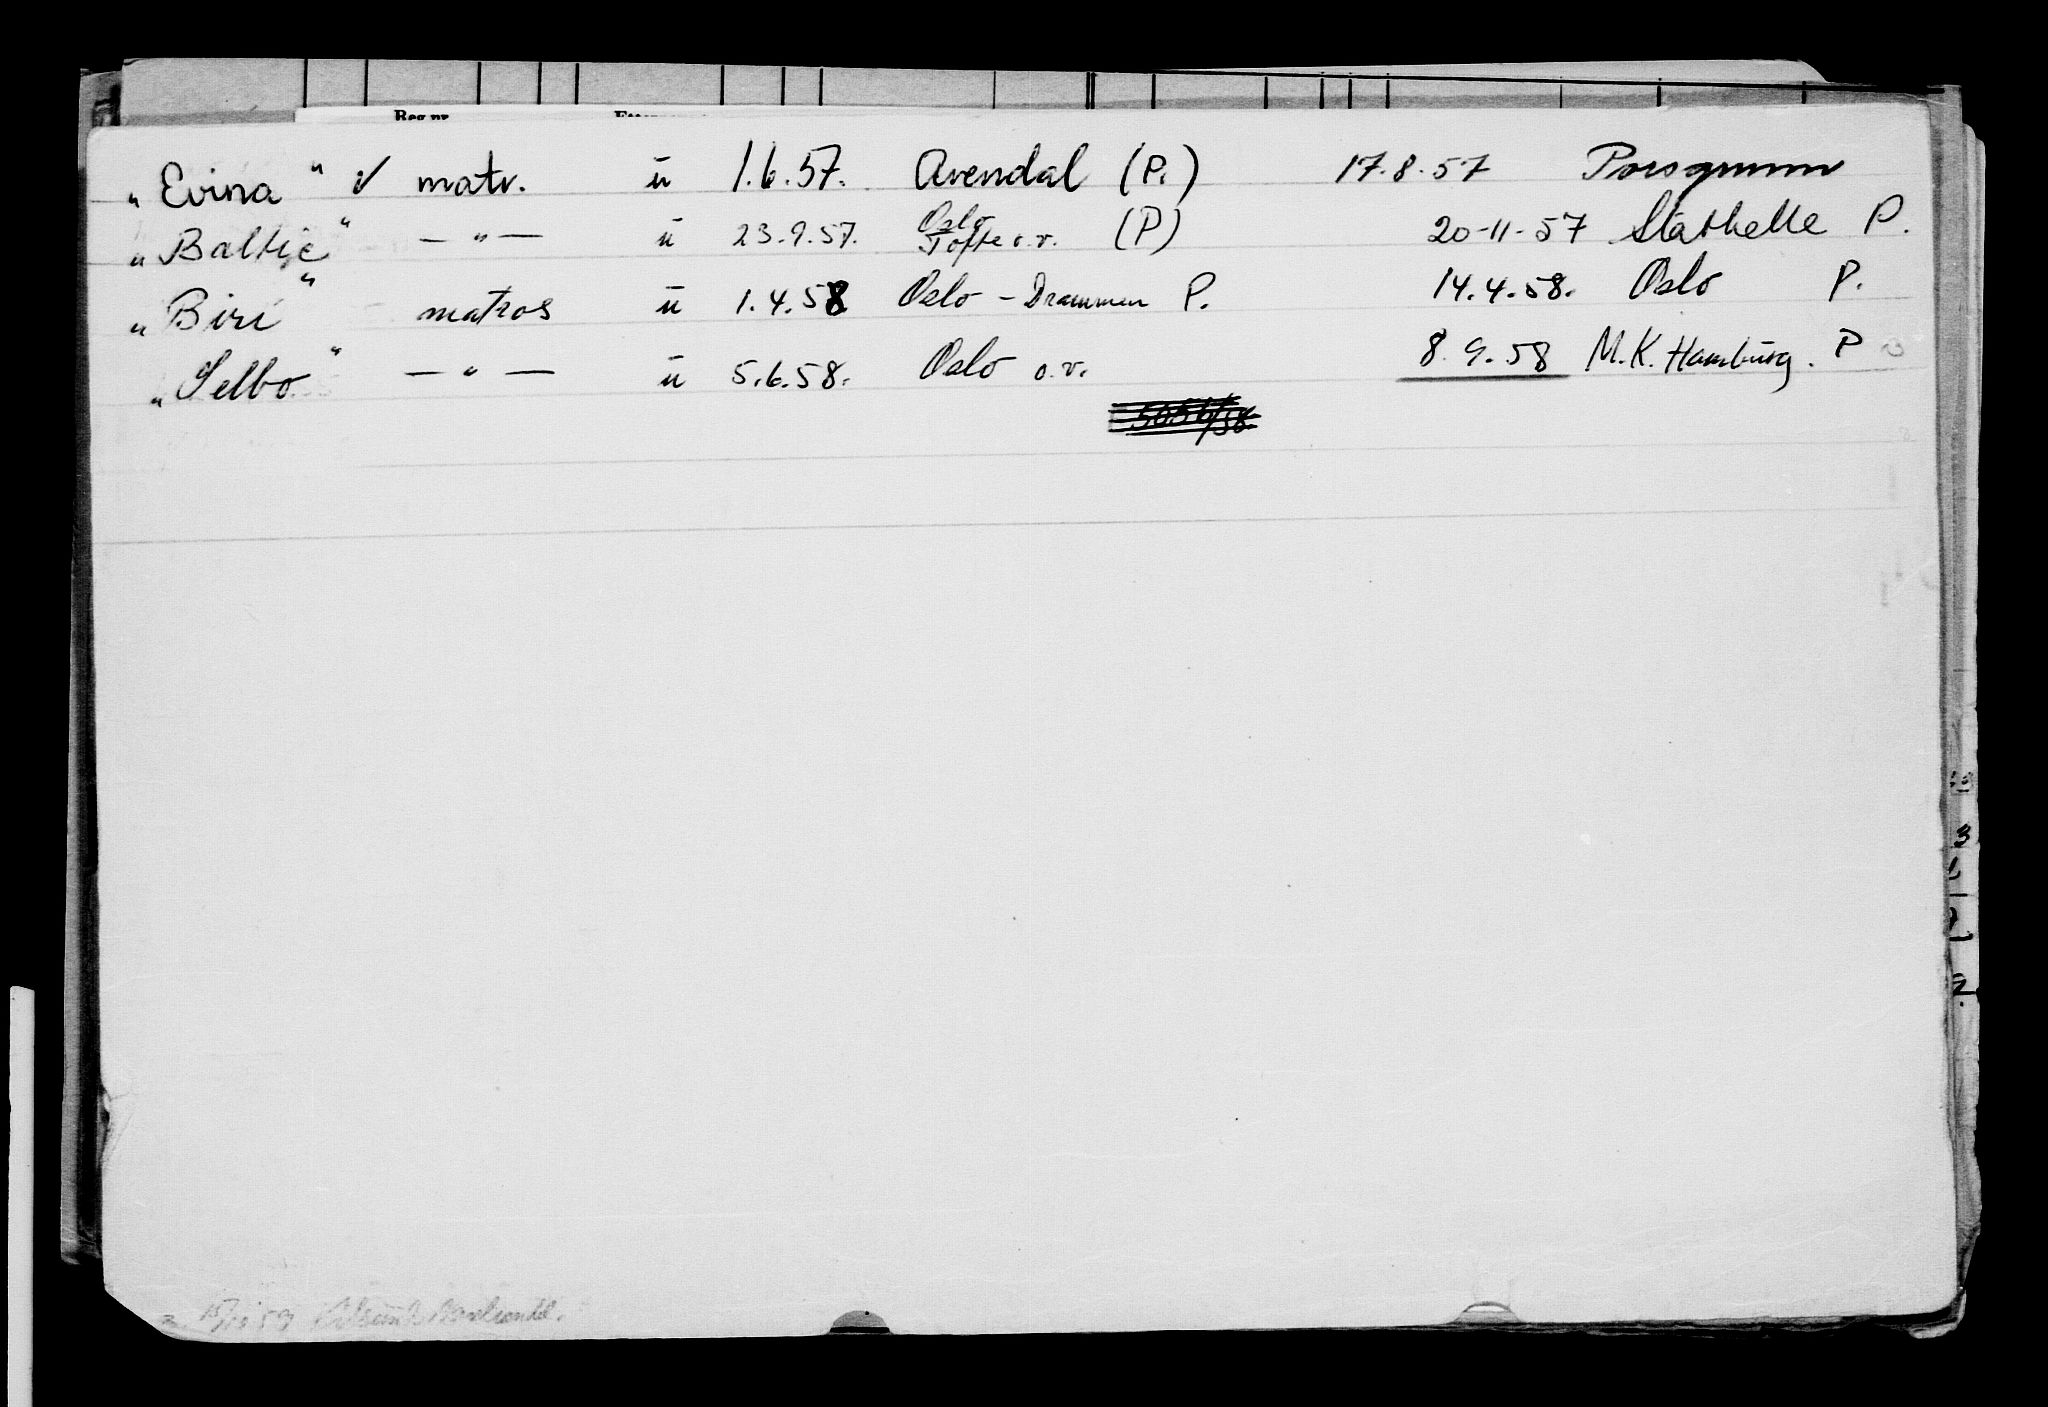 „Evina“ ✓ matr. u 1.6.57. Arendal (P.) 17.8.57 Porsgrunn
„Baltic“ — „ — u 23.9.57. Oslo Tofte o.v. (P) 20-11-57 Stathelle P.
„Biri“ matros u 1.4.58 Oslo - Drammen P. 14.4.58. Oslo P.
„Selbo“ — „ — u 5.6.58. Oslo o.v. 8.9.58 M.K. Hamburg. P